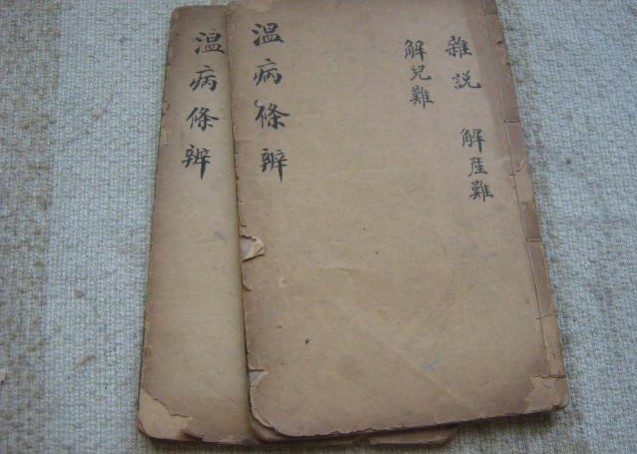 雜説
解產難
解兒難
温病條辨
温病條辨